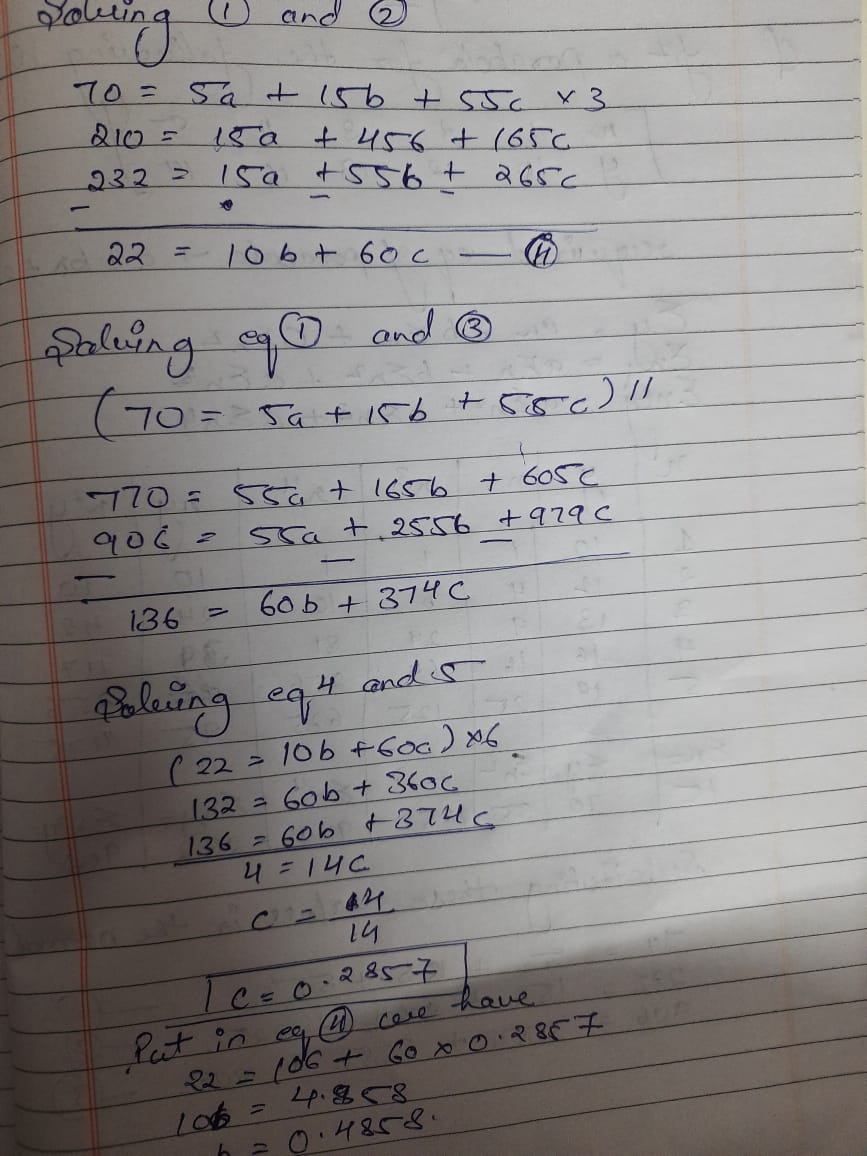 Solving ① and ②
70 = 5a + 15b + 55c × 3
210 = 15a + 45b + 165c
232 = 15a + 55b + 265c
22 = 10b + 60c — ④
Solving eq ① and ③
(70 = 5a + 15b + 55c) 11
770 = 55a + 165b + 605c
906 = 55a + 255b + 979c
136 = 60b + 374c
Solving eq 4 and 5
(22 = 10b + 60c) × 6
132 = 60b + 360c
136 = 60b + 374c
4 = 14c
c = 4
14
c = 0.2857
Put in eq ④ we have
22 = 10b + 60 × 0.2857
10b = 4.858
b = 0.4858.